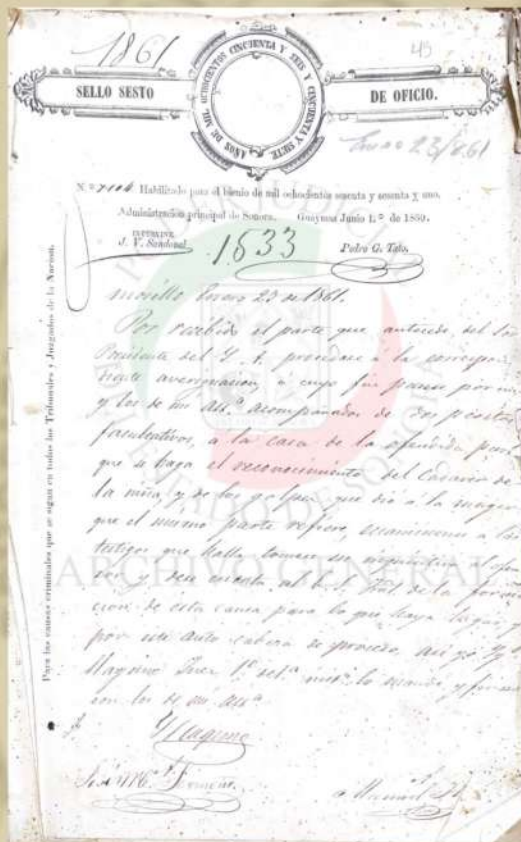 1861
49
SELLO SESTO
AÑOS DE MIL OCHOCIENTOS CINCUENTA Y SEIS Y CINCUENTA Y SIETE.
DE OFICIO.
Enero 23/861
Habilitado para el bienio de mil ochocientos sesenta y sesenta y uno.
Administracion principal de Sonora. Guaymas Junio 1.º de 1859.
J. V. Sandoval. 1533 Pedro G. Tato.
Para las causas criminales que se sigan en todos los Tribunales y Juzgados de la Nacion.
Enero 23 de 1861.
Por recibido el parte que antecede, del Sor
Presidente del Y. A. procedase á la correspon
diente averiguacion, á cuyo fin pasese por mi
y los de mi assª acompañados de dos peritos
facultativos, a la casa de la ofendida para
que se haga el reconocimiento del Cadaver de
la niña, y de los golpes que dió á la muger
que el mismo parte refiere, ecsaminense á los
testigos que halla, tomese su al
y dese cuenta al de la forma
cion de esta causa para lo que haya lugar, y
por este auto cabeza de proceso, asi yo
Juez 1º lo mando y firmo
con los de mi assª
PODER JUDICIAL
DEL ESTADO DE SONORA
ARCHIVO GENERAL